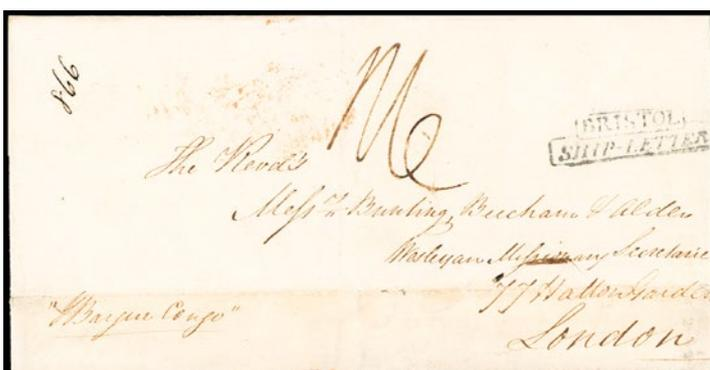 866
BRISTOL
SHIP-LETTER
The Revd's
Messrs Bunting, Beecham & Alder
Wesleyan Missionary Secretarie
77 Hatton Garden
"Barque Congo"
London